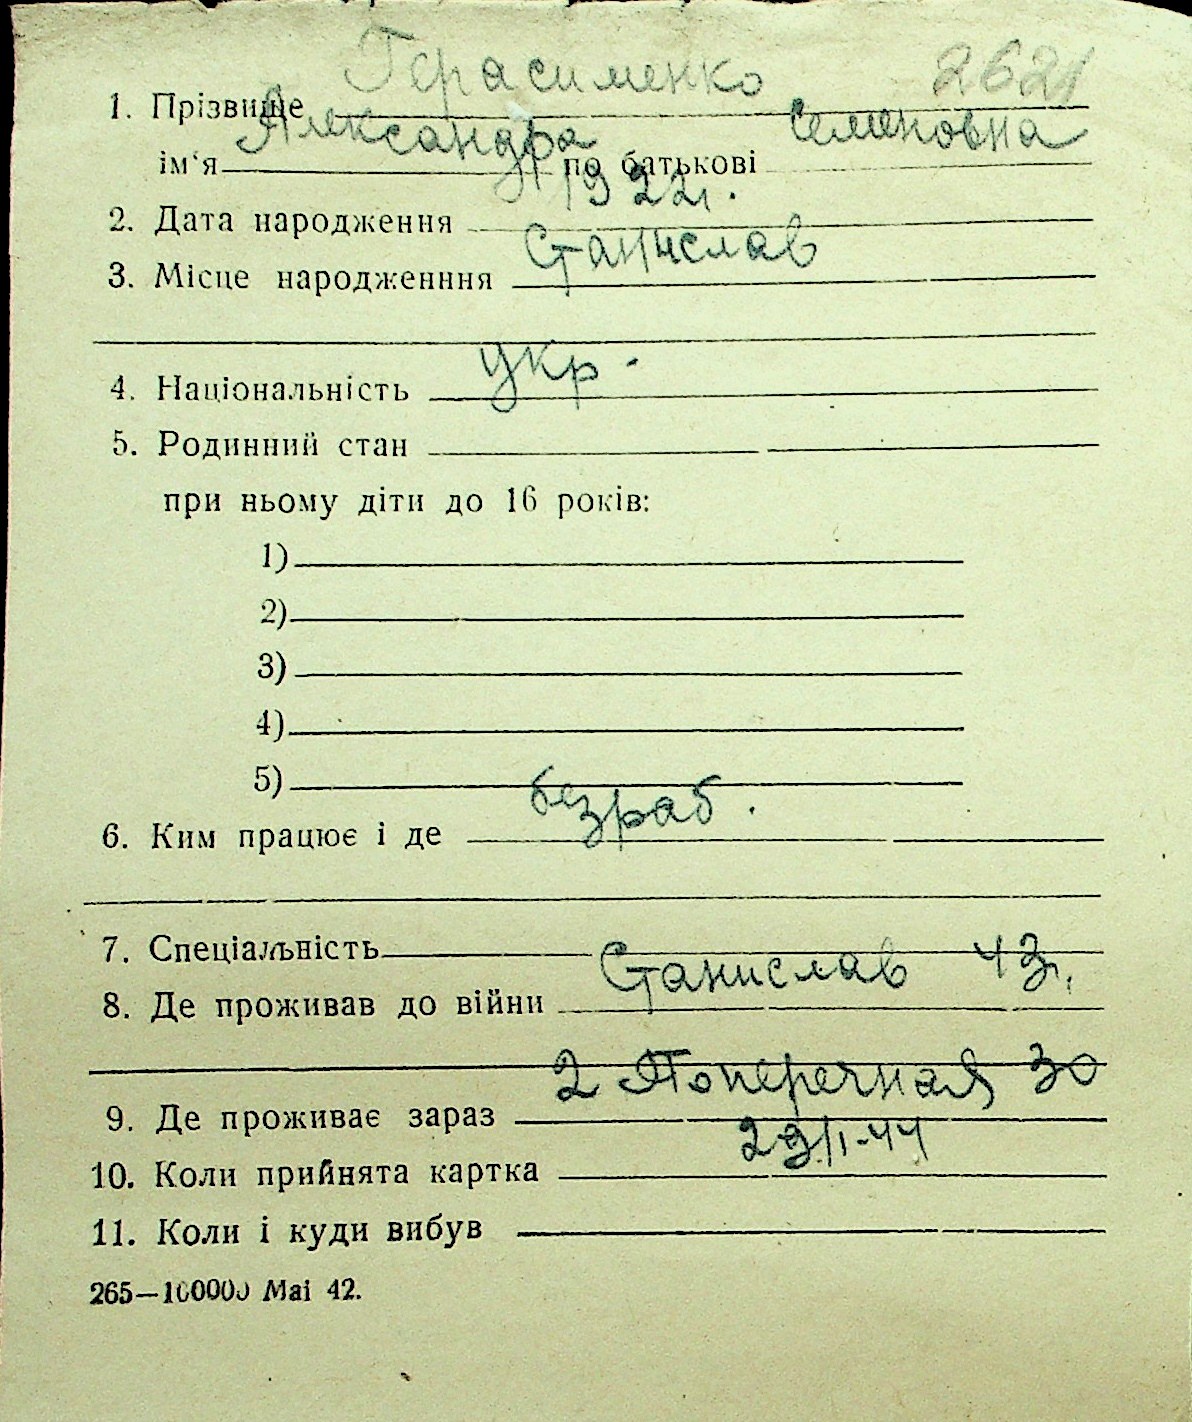 Герасименко 2621
1. Прізвище
Александра Семеновна
ім'я по батькові
1922г.
2. Дата народження
Станислав
3. Місце народженння
укр.
4. Національність
5. Родинний стан
при ньому діти до 16 років:
1)
2)
3)
4)
5)
безраб.
6. Ким працює і де
7. Спеціальність
Станислав 43г.
8. Де проживав до війни
2 Поперечная 30
9. Де проживає зараз
29/I-44
10. Коли прийнята картка
11. Коли і куди вибув
265—10000 Mai 42.